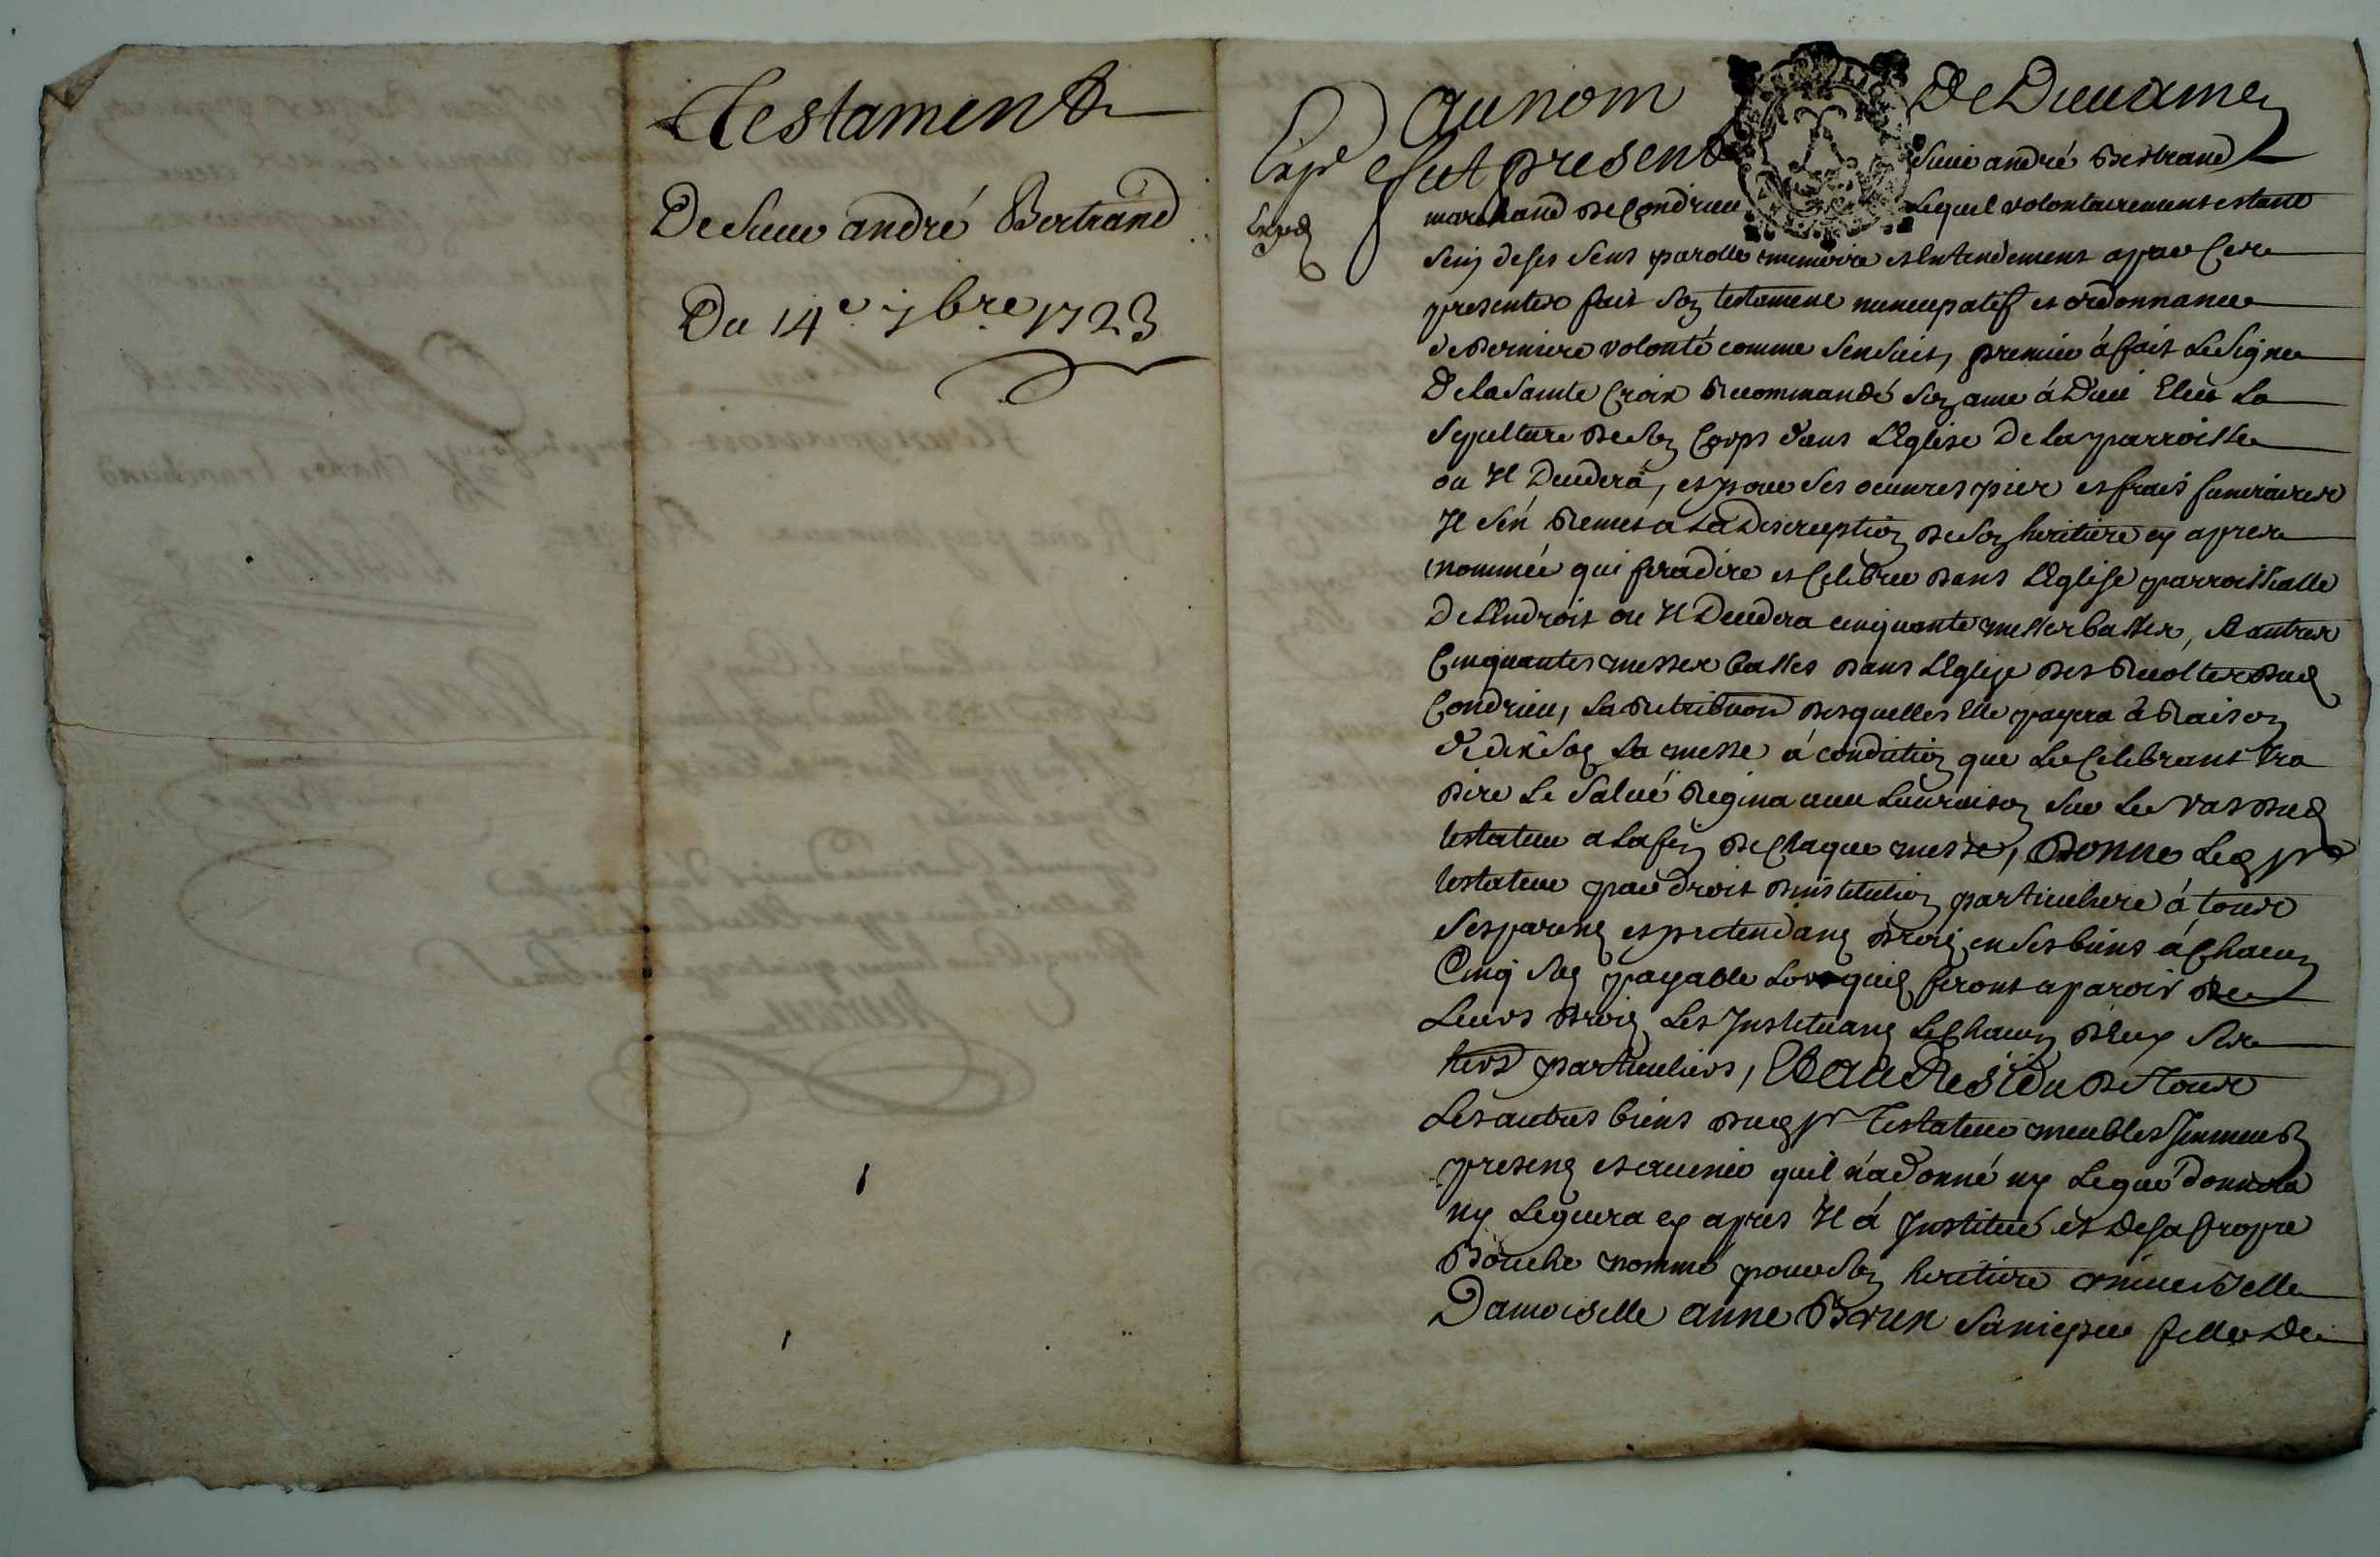 Testament
De Sieur andré Bertrand
Du 14e 7bre 1723
Expé
Exped
Au nom De Dieu amen
fut present Sieur andré Bertrand
marchand de Condrieu Lequel volontairement estant
sein de ses sens parolle memoire et Entendement a par Ces
presentes fait son testament nuncupatif et ordonnance
de derniere volonté comme Sensuit, premier á fait Le Signe
De la Sainte Croix Recommandé son ame á Dieu Eleu La
Sepulture de son Corps dans L'Eglise De la parroisse
ou Il Decedera, et pour ses oeuvres pies et frais funeraires
Il s'en Remet a La Discreption de son heritiere cy apres
nommée qui fera dire et Celebrer dans L'Eglise parroissialle
De L'Endroit ou Il Decedera cinquante messes basses, & autres
Cinquantes messes basses dans L'Eglize des Recoltes dud
Condrieu, La Retribuon desquelles Elle payera á Raison
de dix sos La messe á condition que Le Celebrant Ira
dire Le Salué Regina avec L'auraison sur Le vas dud
testateur a La fin de Chaque messe, Donne Led sr
testateur par droit d'institution particuliere á tous
ses parens et pretendans droits en ses biens á Chacun
Cinq sos payable Lorsquils feront aparoir de
Leurs droits Les Instituans Et Chacun d'Eux ses
hers particuliers, Et au Residu de Tous
Les autres biens dud sr Testateur meubles Immeub
presens et avenir quil n'a donné ny Legué donnera
ny Leguera cy apres Il á Institué et de sa propre
Bouche nommé pour son heritiere universelle
Damoiselle anne Brun sa niepce fille de